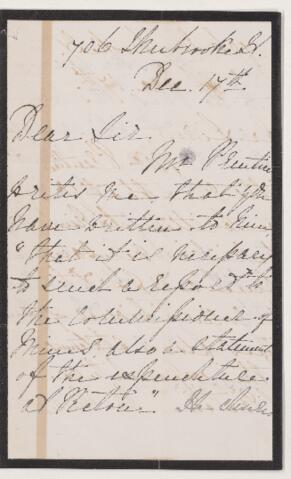 706 Sherbrooke St.
Dec. 17th
Dear Sir.
Mr Prentice
writes me that you
have written to him
"that it is necessary
to send a report to
the Commissioner of
Mines also a statement
of the expenditure
at